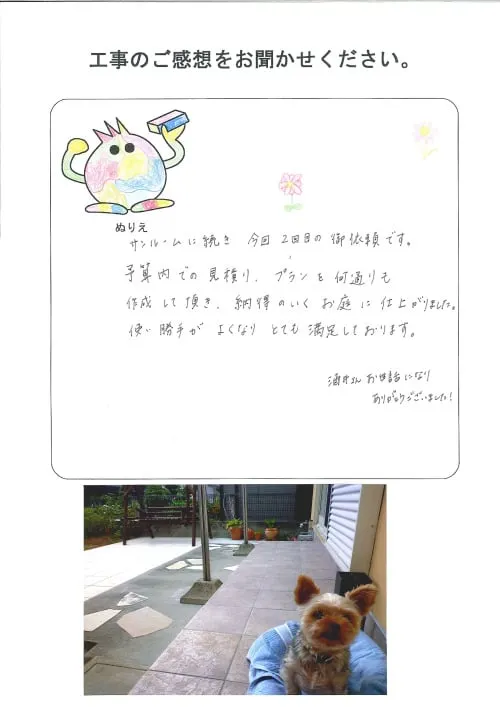 工事のご感想をお聞かせください。
ぬりえ
サンルームに続き 今回 2回目の御依頼です。
予算内での見積り、プランを何通りも
作成して頂き、納得のいくお庭に仕上がりました。
使い勝手が よくなり とても満足しております。
酒井さん お世話になり
ありがとうございました!